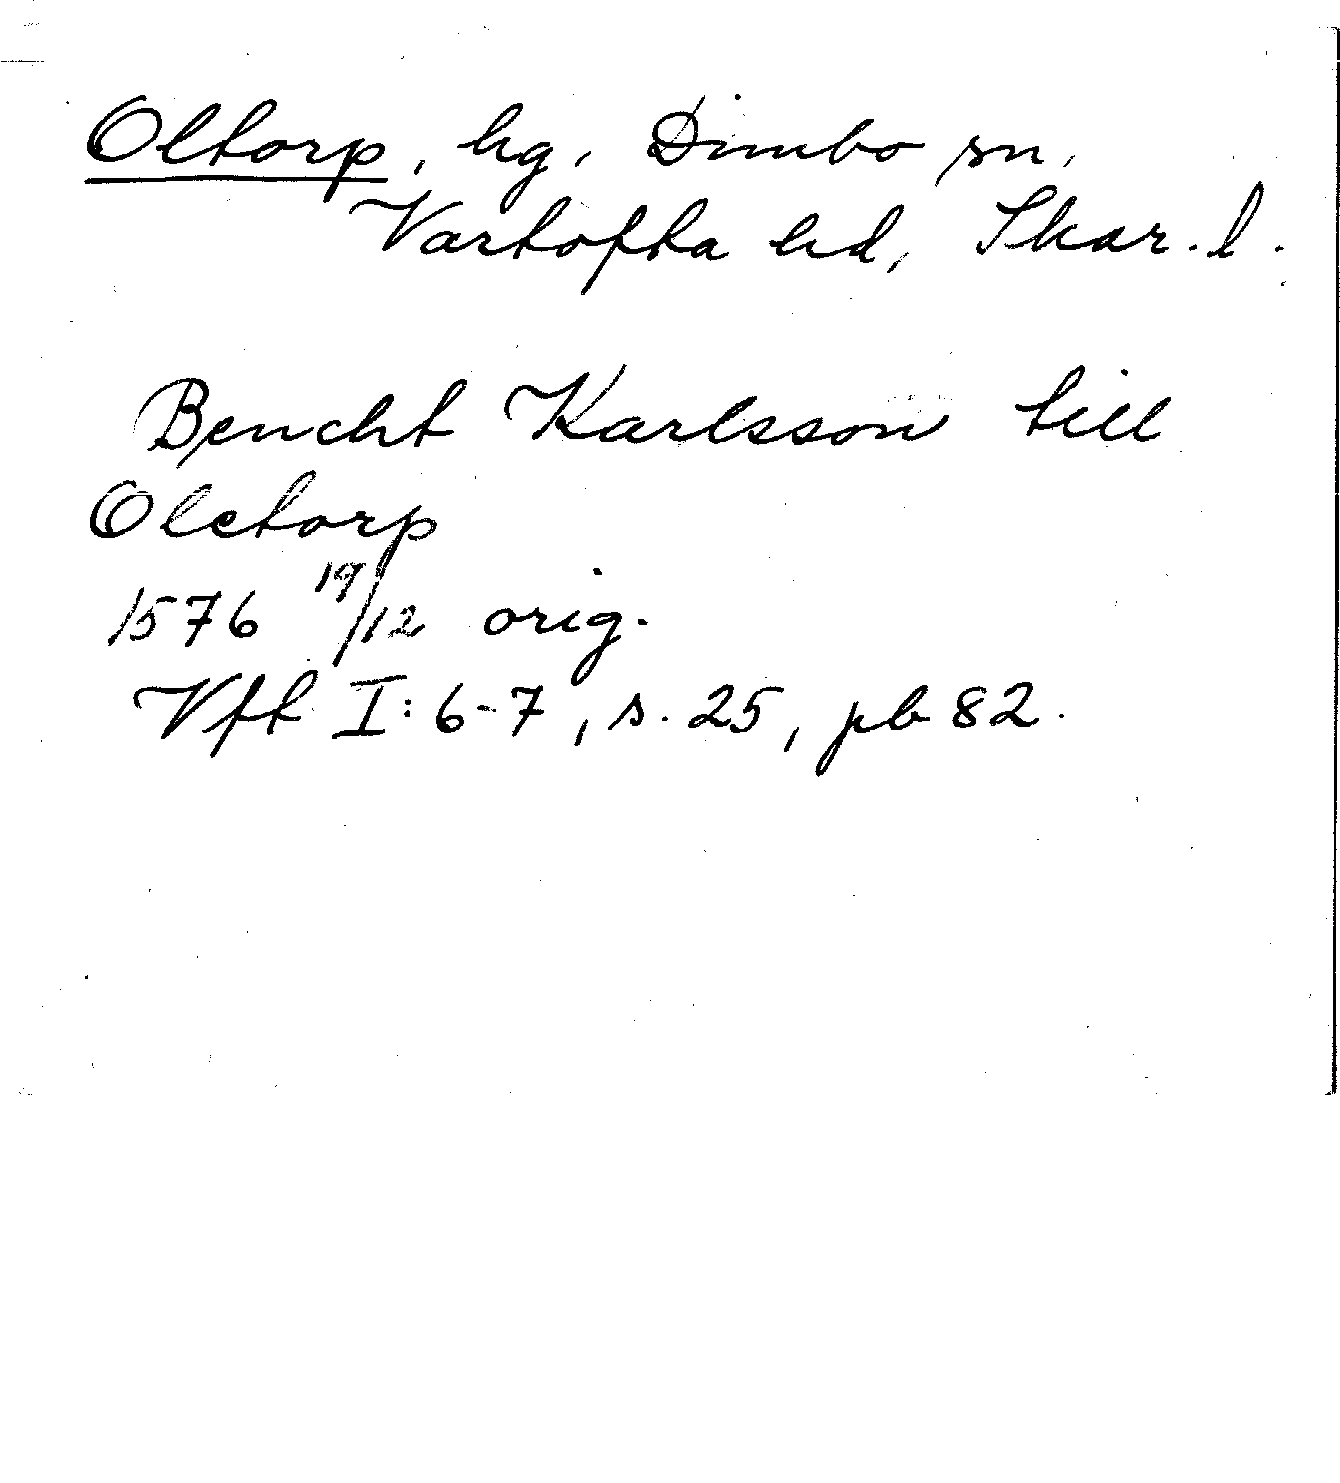 Oltorp, hg, Dimbo sn,
Vartofta hd, Skar. l.
Bencht Karlsson till
Oletorp
1576 19/12 orig.
Vft I: 6-7, s. 25, pb 82.